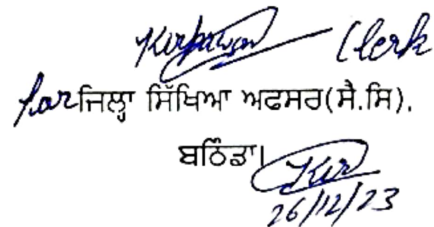 Clerk
for ਜਿਲ੍ਹਾ ਸਿੱਖਿਆ ਅਫਸਰ(ਸੈ.ਸਿ).
ਬਠਿੰਡਾ।
26/12/23